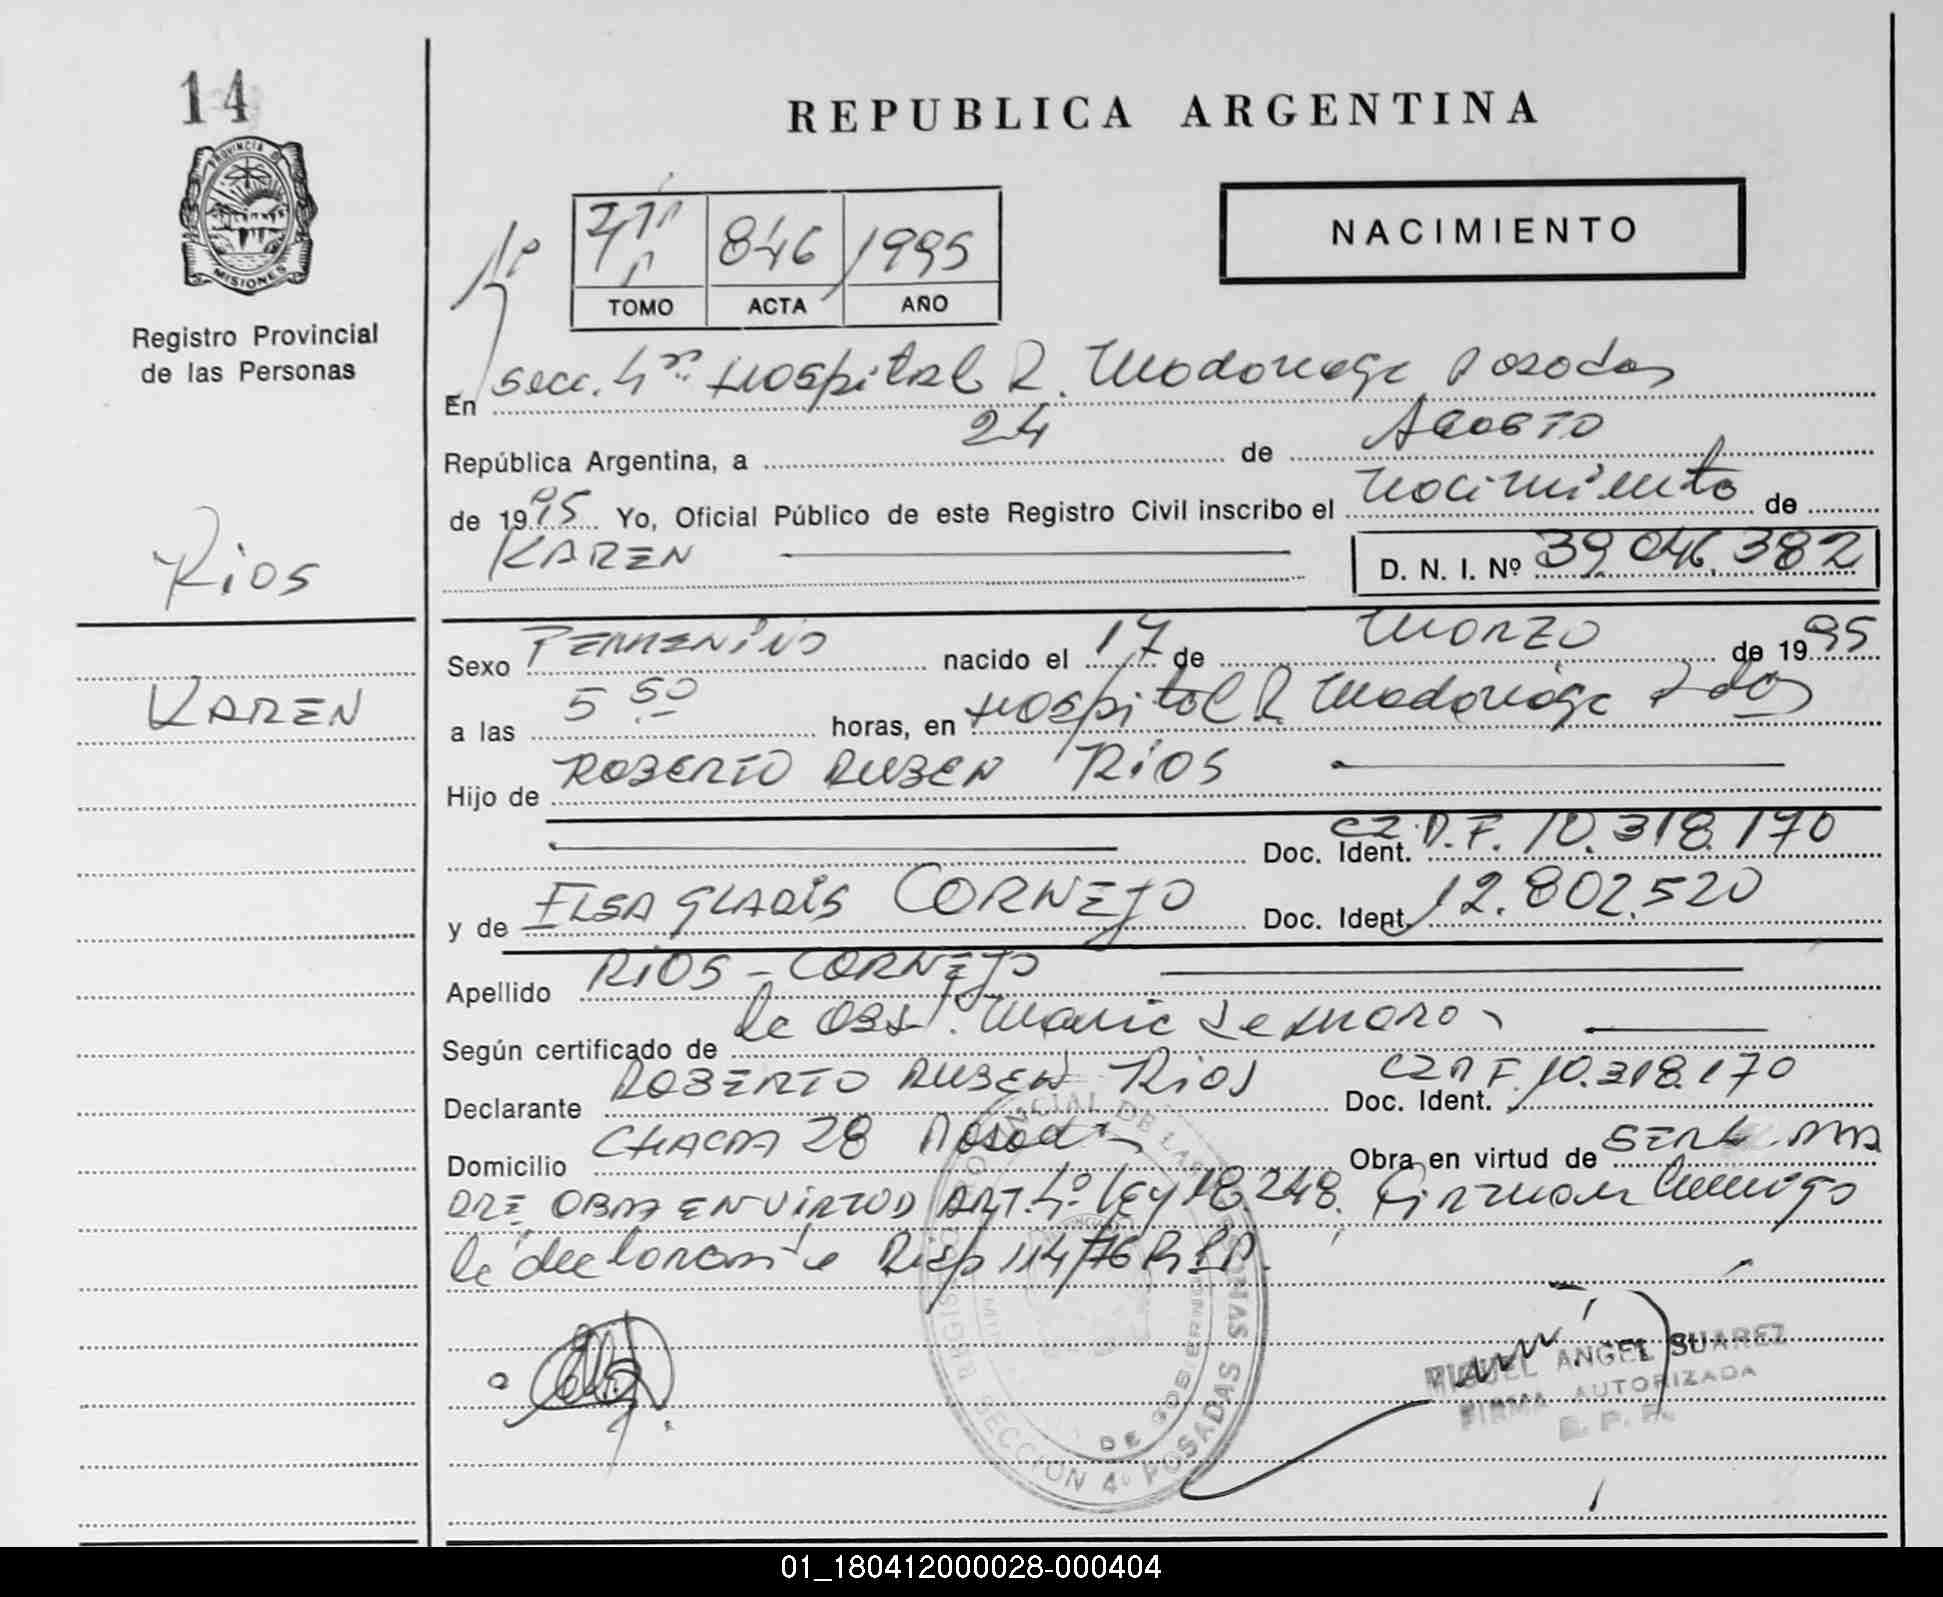 14
PROVINCIA DE
MISIONES
Registro Provincial
de las Personas
Rios
KAREN
REPUBLICA ARGENTINA
NACIMIENTO
846 1995
TOMO ACTA AÑO
En Secc. 4ta Hospital R. Madariaga Posadas
República Argentina, a 24 de Agosto
de 1995 Yo, Oficial Público de este Registro Civil inscribo el Nacimiento de
KAREN D. N. I. Nº 39.046.382
Sexo FEMENINO nacido el 17 de Marzo de 1995
a las 5 50 horas, en Hospital R Madariaga Pdas
Hijo de ROBERTO RUBEN RIOS
Doc. Ident. CZ.D.F. 10.318.170
y de ELSA GLADIS CORNEJO Doc. Ident. 12.802.520
Apellido RIOS - CORNEJO
Según certificado de la Obst. Maria
Declarante ROBERTO RUBEN Rios Doc. Ident. 10.318.170
Domicilio CHACRA 28 Posadas Obra en virtud de SER EL PA
DRE OBRA EN VIRTUD ART. 4º Ley 18.248. Firman Conmigo
la declarante Disp 114/76
SECCION 4º POSADAS
MIGUEL ANGEL SUAREZ
FIRMA AUTORIZADA
R. P. P.
01_180412000028-000404